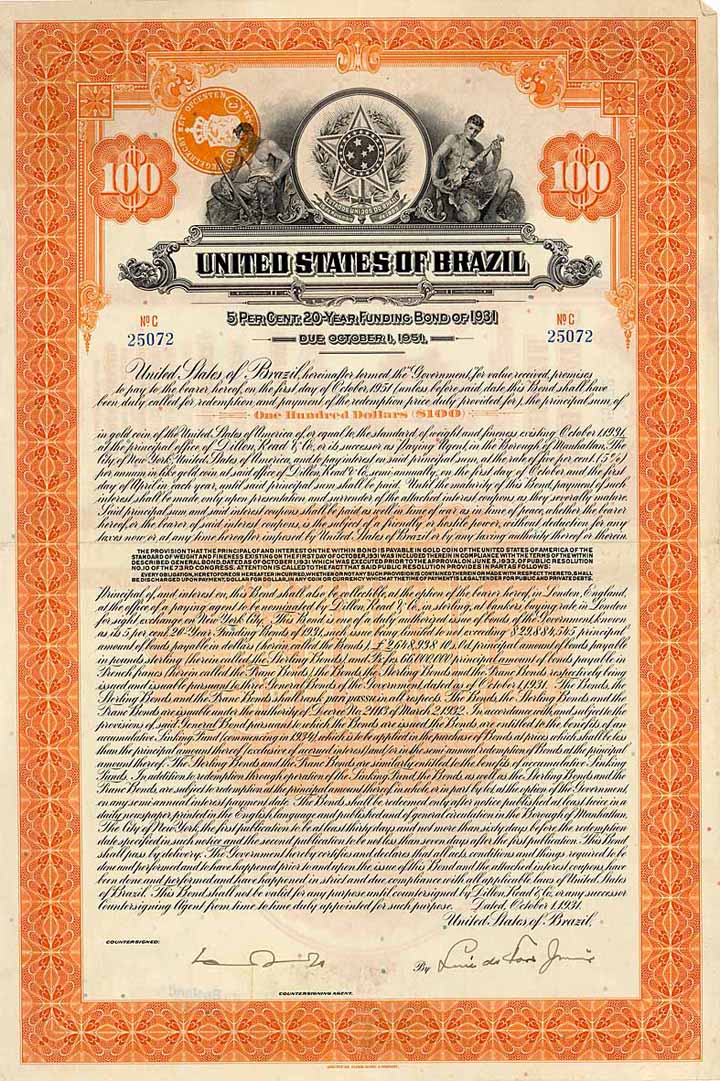 100
100
ESTADOS UNIDOS DO BRASIL
UNITED STATES OF BRAZIL
5 PER CENT. 20-YEAR FUNDING BOND OF 1931
DUE OCTOBER 1, 1951.
No C
25072
No C
25072
United States of Brazil, hereinafter termed the "Government," for value received, promises
to pay to the bearer hereof, on the first day of October 1951 (unless before said date this Bond shall have
been duly called for redemption and payment of the redemption price duly provided for), the principal sum of
One Hundred Dollars ($100)
in gold coin of the United States of America of, or equal to, the standard of weight and fineness existing October 1, 1931,
at the principal office of Dillon, Read & Co., or its successor as Paying Agent, in the Borough of Manhattan, The
City of New York, United States of America, and to pay interest on said principal sum, at the rate of five per cent. (5%)
per annum, in like gold coin, at said office of Dillon, Read & Co., semi-annually, on the first day of October and the first
day of April in each year, until said principal sum shall be paid. Until the maturity of this Bond, payment of such
interest shall be made only upon presentation and surrender of the attached interest coupons, as they severally mature.
Said principal sum and said interest coupons shall be paid as well in time of war as in time of peace, whether the bearer
hereof, or the bearer of said interest coupons, is the subject of a friendly or hostile power, without deduction for any
taxes now or at any time hereafter imposed by United States of Brazil or by any taxing authority thereof or therein.
THE PROVISION THAT THE PRINCIPAL OF AND INTEREST ON THE WITHIN BOND IS PAYABLE IN GOLD COIN OF THE UNITED STATES OF AMERICA OF THE
STANDARD OF WEIGHT AND FINENESS EXISTING ON THE FIRST DAY OF OCTOBER, 1931 WAS INCLUDED THEREIN IN COMPLIANCE WITH THE TERMS OF THE WITHIN
DESCRIBED GENERAL BOND, DATED AS OF OCTOBER 1, 1931 WHICH WAS EXECUTED PRIOR TO THE APPROVAL ON JUNE 5, 1933, OF PUBLIC RESOLUTION
NO. 10 OF THE 73RD CONGRESS. ATTENTION IS CALLED TO THE FACT THAT SAID PUBLIC RESOLUTION PROVIDES IN PART AS FOLLOWS:
EVERY OBLIGATION, HERETOFORE OR HEREAFTER INCURRED, WHETHER OR NOT ANY SUCH PROVISION IS CONTAINED THEREIN OR MADE WITH RESPECT THERETO, SHALL
BE DISCHARGED UPON PAYMENT, DOLLAR FOR DOLLAR, IN ANY COIN OR CURRENCY WHICH AT THE TIME OF PAYMENT IS LEGAL TENDER FOR PUBLIC AND PRIVATE DEBTS.
Principal of, and interest on, this Bond shall also be collectible, at the option of the bearer hereof, in London, England,
at the office of a paying agent to be nominated by Dillon, Read & Co., in sterling, at bankers' buying rate in London
for sight exchange on New York City. This Bond is one of a duly authorized issue of bonds of the Government, known
as its 5 per cent. 20-Year Funding Bonds of 1931, such issue being limited to not exceeding $29,884,545 principal
amount of bonds payable in dollars (herein called the Bonds), £2,648,938 10s. 0d. principal amount of bonds payable
in pounds sterling (herein called the Sterling Bonds), and Fr. frs. 66,000,000 principal amount of bonds payable in
French francs (herein called the Franc Bonds), the Bonds, the Sterling Bonds and the Franc Bonds respectively being
issued and issuable pursuant to three General Bonds of the Government, dated as of October 1, 1931. The Bonds, the
Sterling Bonds and the Franc Bonds shall rank pari passu in all respects. The Bonds, the Sterling Bonds and the
Franc Bonds are issuable under the authority of Decree No. 21113 of March 2, 1932. In accordance with, and subject to, the
provisions of said General Bond pursuant to which the Bonds are issued, the Bonds are entitled to the benefits of an
accumulative Sinking Fund (commencing in 1934), which is to be applied in the purchase of Bonds at prices which shall be less
than the principal amount thereof (exclusive of accrued interest) and/or in the semi-annual redemption of Bonds at the principal
amount thereof. The Sterling Bonds and the Franc Bonds are similarly entitled to the benefits of accumulative Sinking
Funds. In addition to redemption through operation of the Sinking Fund, the Bonds, as well as the Sterling Bonds and the
Franc Bonds, are subject to redemption at the principal amount thereof, in whole, or in part by lot, at the option of the Government,
on any semi-annual interest payment date. The Bonds shall be redeemed only after notice published at least twice in a
daily newspaper printed in the English language and published and of general circulation in the Borough of Manhattan,
The City of New York, the first publication to be at least thirty days and not more than sixty days before the redemption
date specified in such notice and the second publication to be not less than seven days after the first publication. This Bond
shall pass by delivery. The Government hereby certifies and declares that all acts, conditions and things required to be
done and performed and to have happened prior to and upon the issue of this Bond and the attached interest coupons, have
been done and performed and have happened in strict and due compliance with all applicable laws of United States
of Brazil. This Bond shall not be valid for any purpose until countersigned by Dillon, Read & Co. or any successor
Countersigning Agent from time to time duly appointed for such purpose. Dated, October 1, 1931.
United States of Brazil,
COUNTERSIGNED:
By
COUNTERSIGNING AGENT.